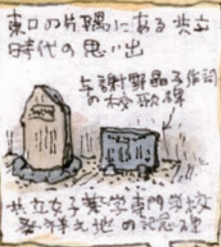 東口の片隅にある共立
時代の思い出
与謝野晶子作詞
の校歌碑
共立女子薬学専門学校
発祥之地の記念碑